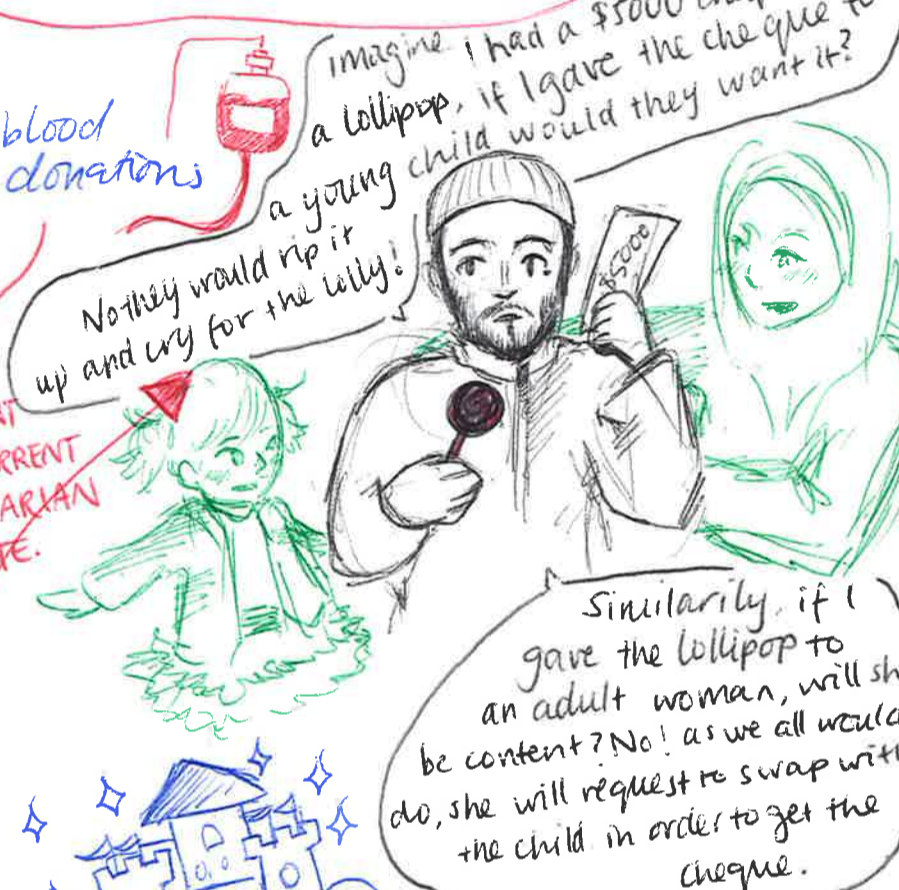 imagine i had a $5000
a lollipop, if I gave the cheque to
a young child would they want it?
No they would rip it
up and cry for the lolly!
blood
donations
$5000
Similarily, if I
gave the lollipop to
an adult woman, will
be content? No! as we all would
do, she will request to swap with
the child in order to get the
cheque.